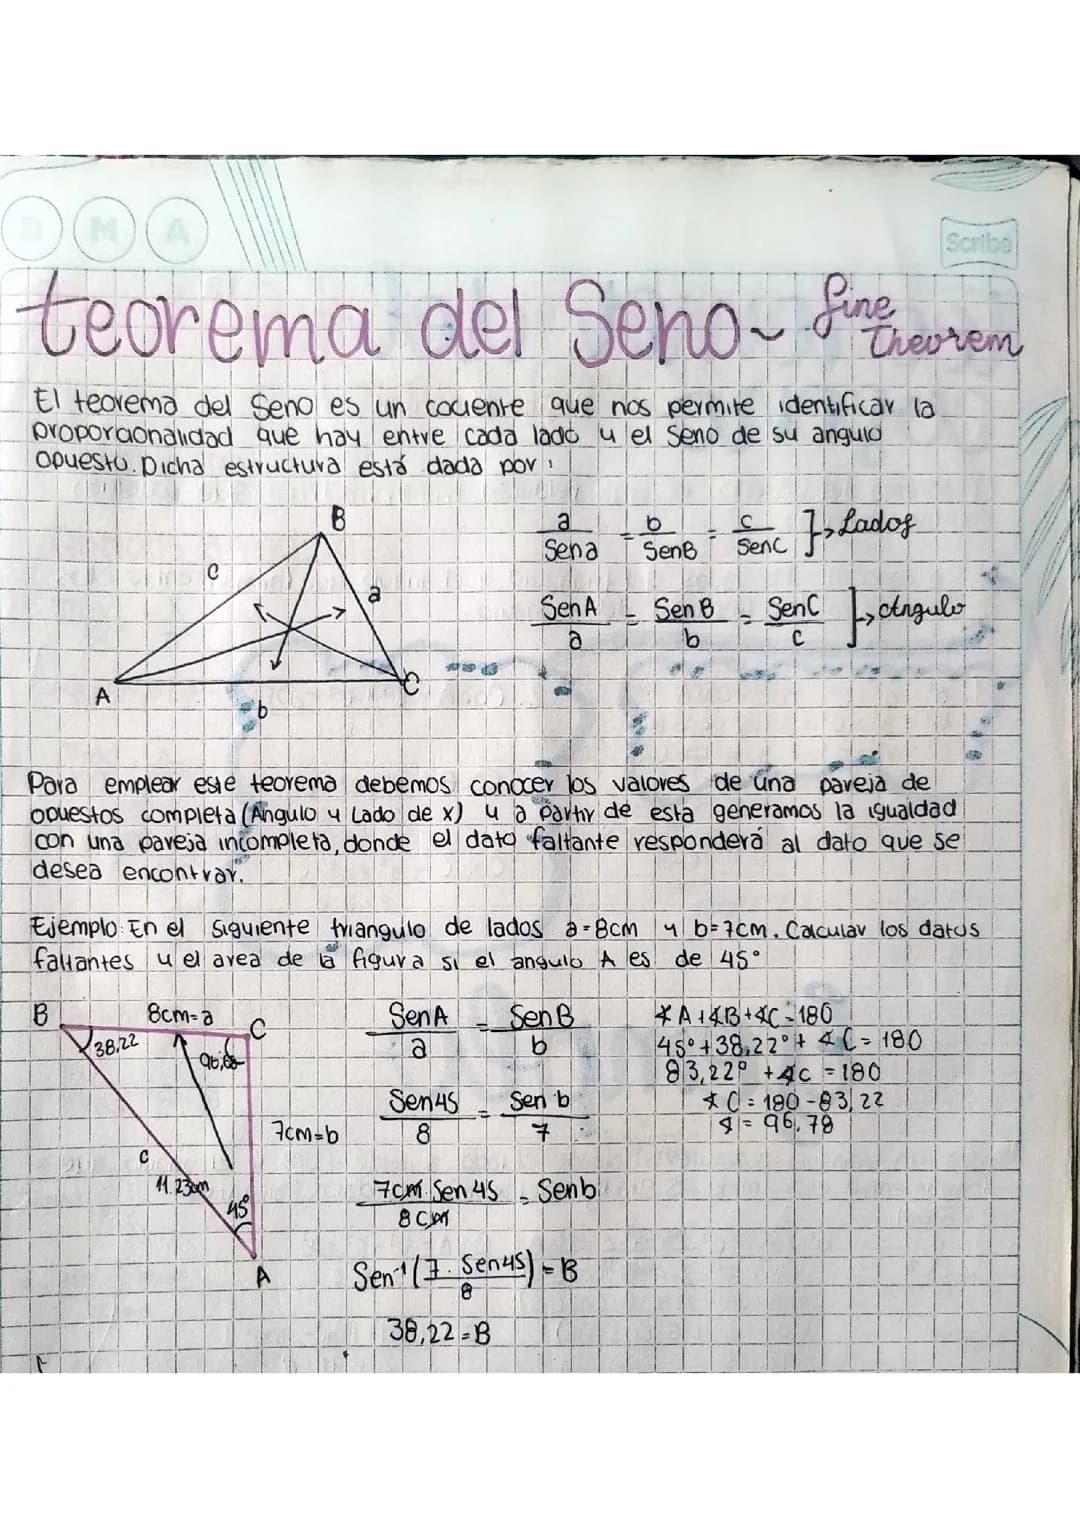 D M A
Scribe
teorema del Seno~ Sine Theorem
El teorema del Seno es un cociente que nos permite identificar la
proporcionalidad que hay entre cada lado y el Seno de su angulo
opuesto. Dicha estructura está dada por:
a/Sena = b/SenB = c/SenC }→ Lados
SenA/a = SenB/b = SenC/c ]→ Angulo
B
c
a
A
C
b
Para emplear este teorema debemos conocer los valores de una pareja de
opuestos completa (Angulo y Lado de x) y a partir de esta generamos la igualdad
con una pareja incompleta, donde el dato faltante responderá al dato que se
desea encontrar.
Ejemplo: En el siguiente triangulo de lados a=8cm y b=7cm. Calcular los datos
faltantes y el area de la figura si el angulo A es de 45°
B
8cm=a
C
38,22
7cm=b
c
11.23cm
45°
A
SenA/a = SenB/b
Sen45/8 = Sen b/7
7cm.Sen 45/8cm = Senb
Sen⁻¹(7.Sen45/8) = B
38,22=B
∡A+∡B+∡C=180
45°+38,22°+∡C=180
83,22°+∡C=180
∡C=180-83,22
∡=96,78